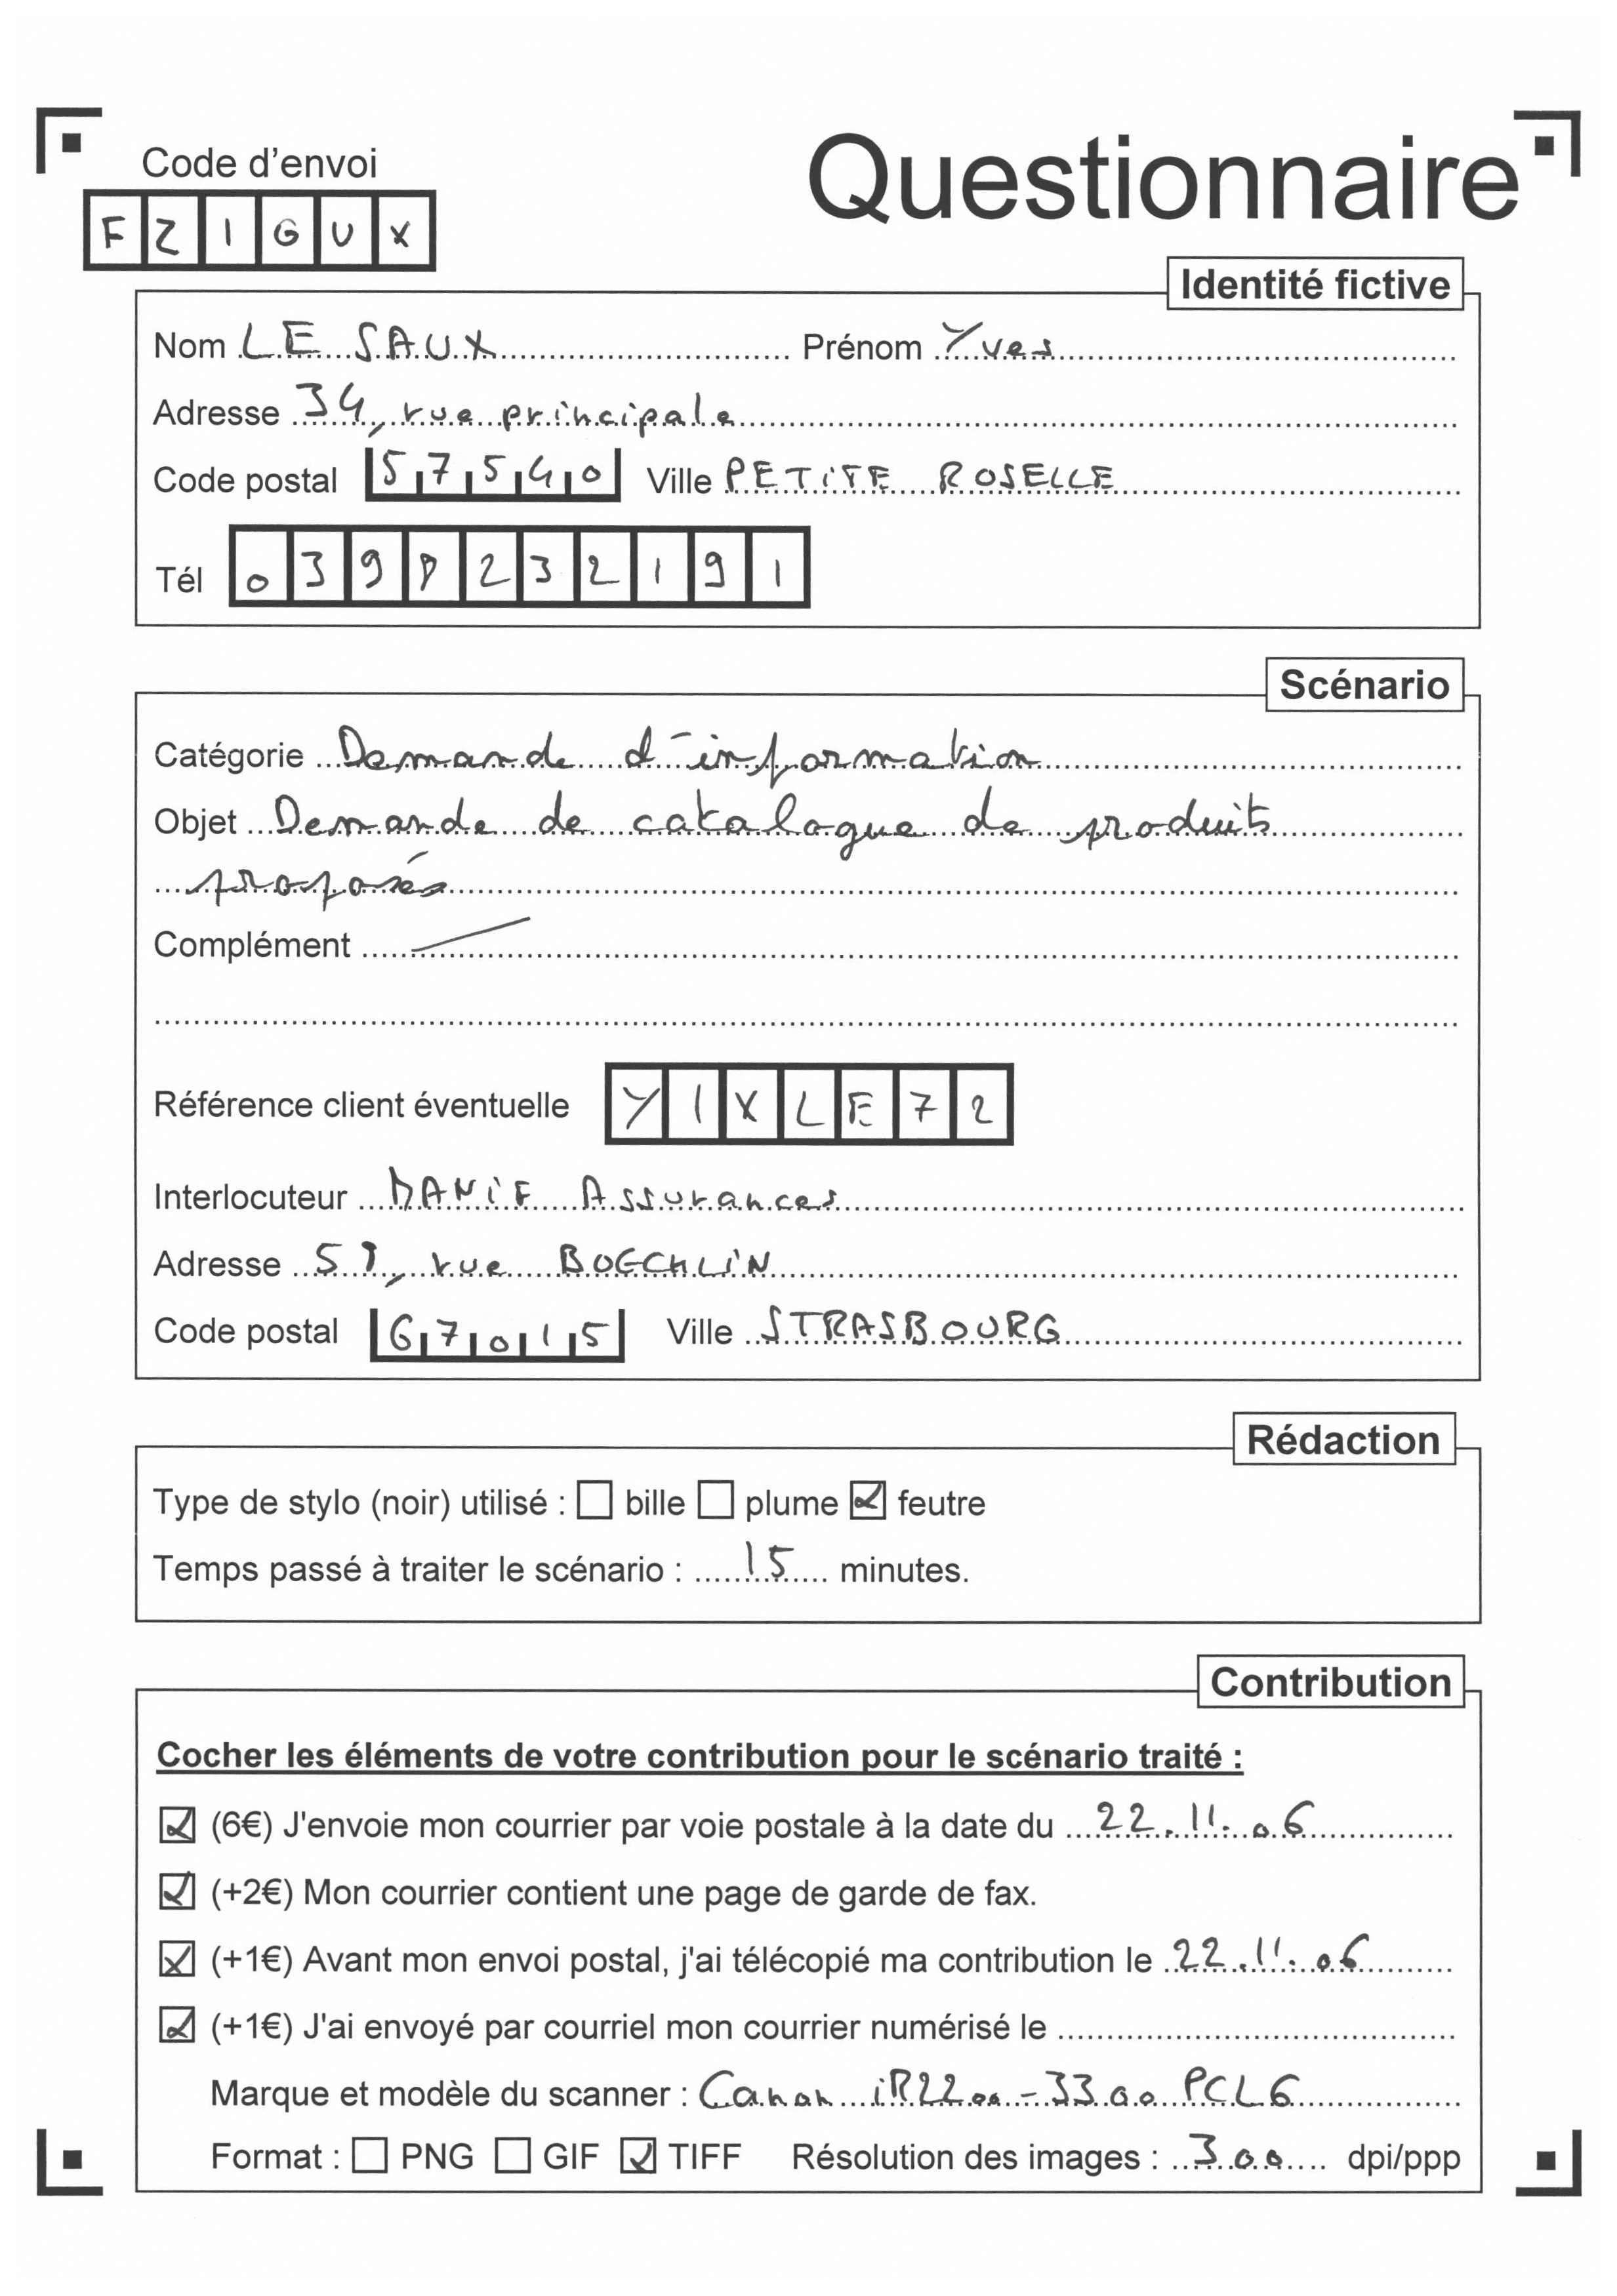 Questionnaire
Code d'envoi
FZIGUX
Identité fictive
Nom LE SAUX Prénom Yves
Adresse 34, rue principale
Code postal 57540 Ville PETITE ROSELLE
Tél 0398232191
Scénario
Catégorie Demande d'information
Objet Demande de catalogue de produits
proposés
Complément
Référence client éventuelle YIXLE72
Interlocuteur Assurances
Adresse rue BOECHLIN
Code postal 67015 Ville STRASBOURG
Rédaction
Type de stylo (noir) utilisé : bille plume feutre
Temps passé à traiter le scénario : 15 minutes.
Contribution
Cocher les éléments de votre contribution pour le scénario traité :
(6€) J'envoie mon courrier par voie postale à la date du 22.11.06
(+2€) Mon courrier contient une page de garde de fax.
(+1€) Avant mon envoi postal, j'ai télécopié ma contribution le 22.11.06
(+1€) J'ai envoyé par courriel mon courrier numérisé le
Marque et modèle du scanner : Canon iR2200-3300 PCL6
Format : PNG GIF TIFF Résolution des images : 300 dpi/ppp